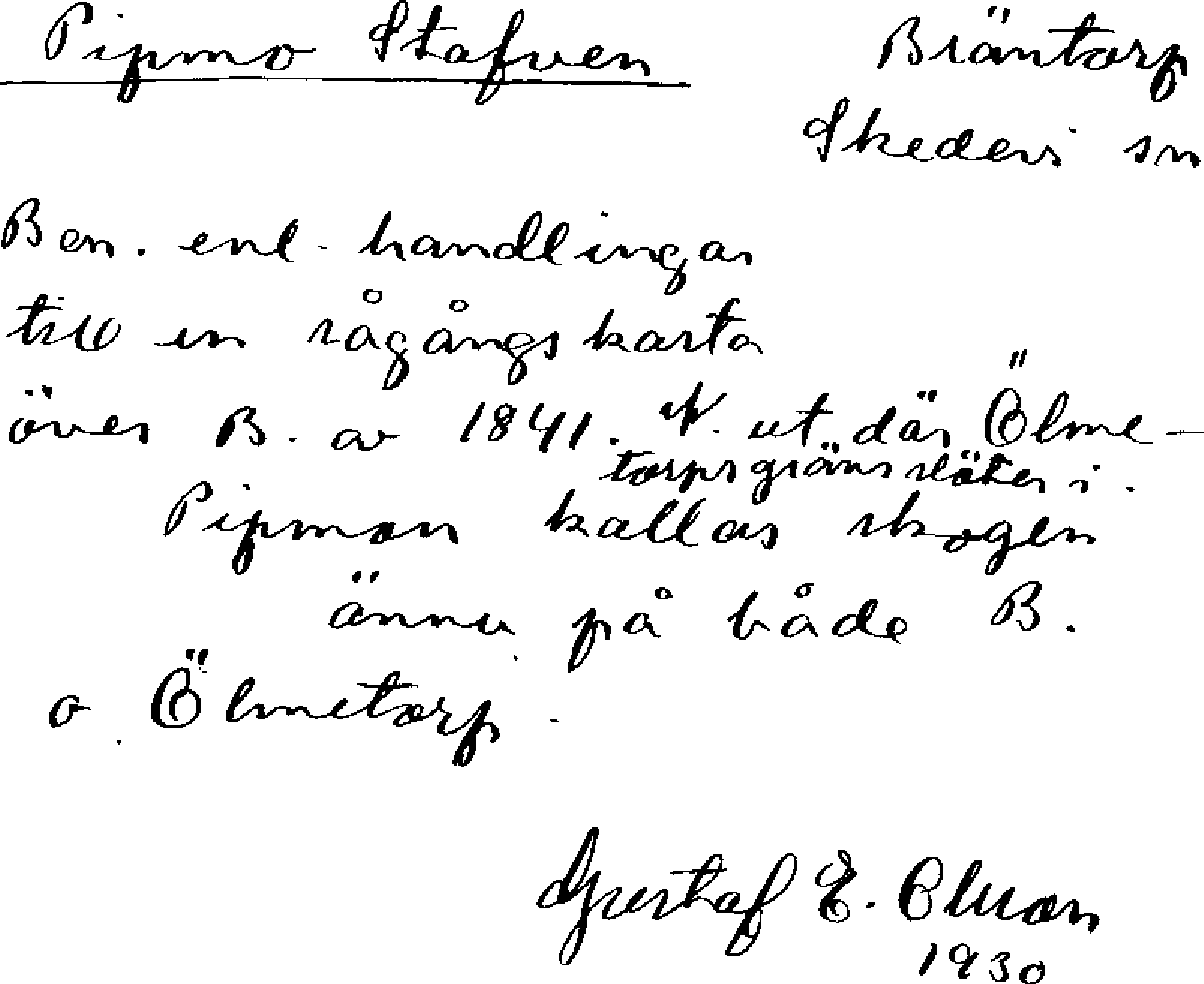 Pipmo Stafven Bräntorp
Skedevi sn
Ben. enl. handlingar
till en rågångskarta
över B. av 1841. N. ut där Ölme-
torpsgräns stöter i.
Pipmon kallas skogen
ännu på både B.
o Ölmetorp.
Gustaf E. Olsson
1930